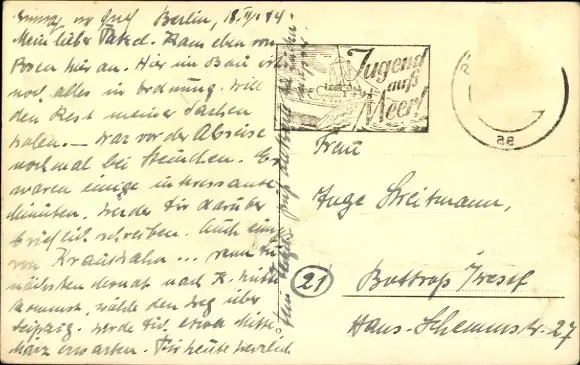 Berlin, 18.II.44.
Mein lieber Kam eben von
Posen hier an. Hier im Bau ist
noch alles in Ordnung. Will
den Rest meiner Sachen
holen. — War vor der Abreise
nochmal bei Es
waren einige interessante
Minuten. Werde Dir darüber
brieflich schreiben. Auch
von wenn Du
nächsten Monat nach K.
kommst, wähle den Weg über
Leipzig. Werde Dir etwa Mitte
März erwarten. Für heute herzlich
Jugend
aufs
Meer!
Frau
Inge Streitmann,
21
Bottrop/Westf
Hans-Schemmstr. 27